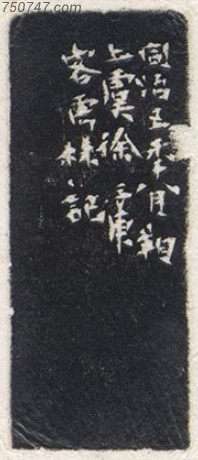 750747.com
同治五年八月朔
上虞徐三庚
客林記